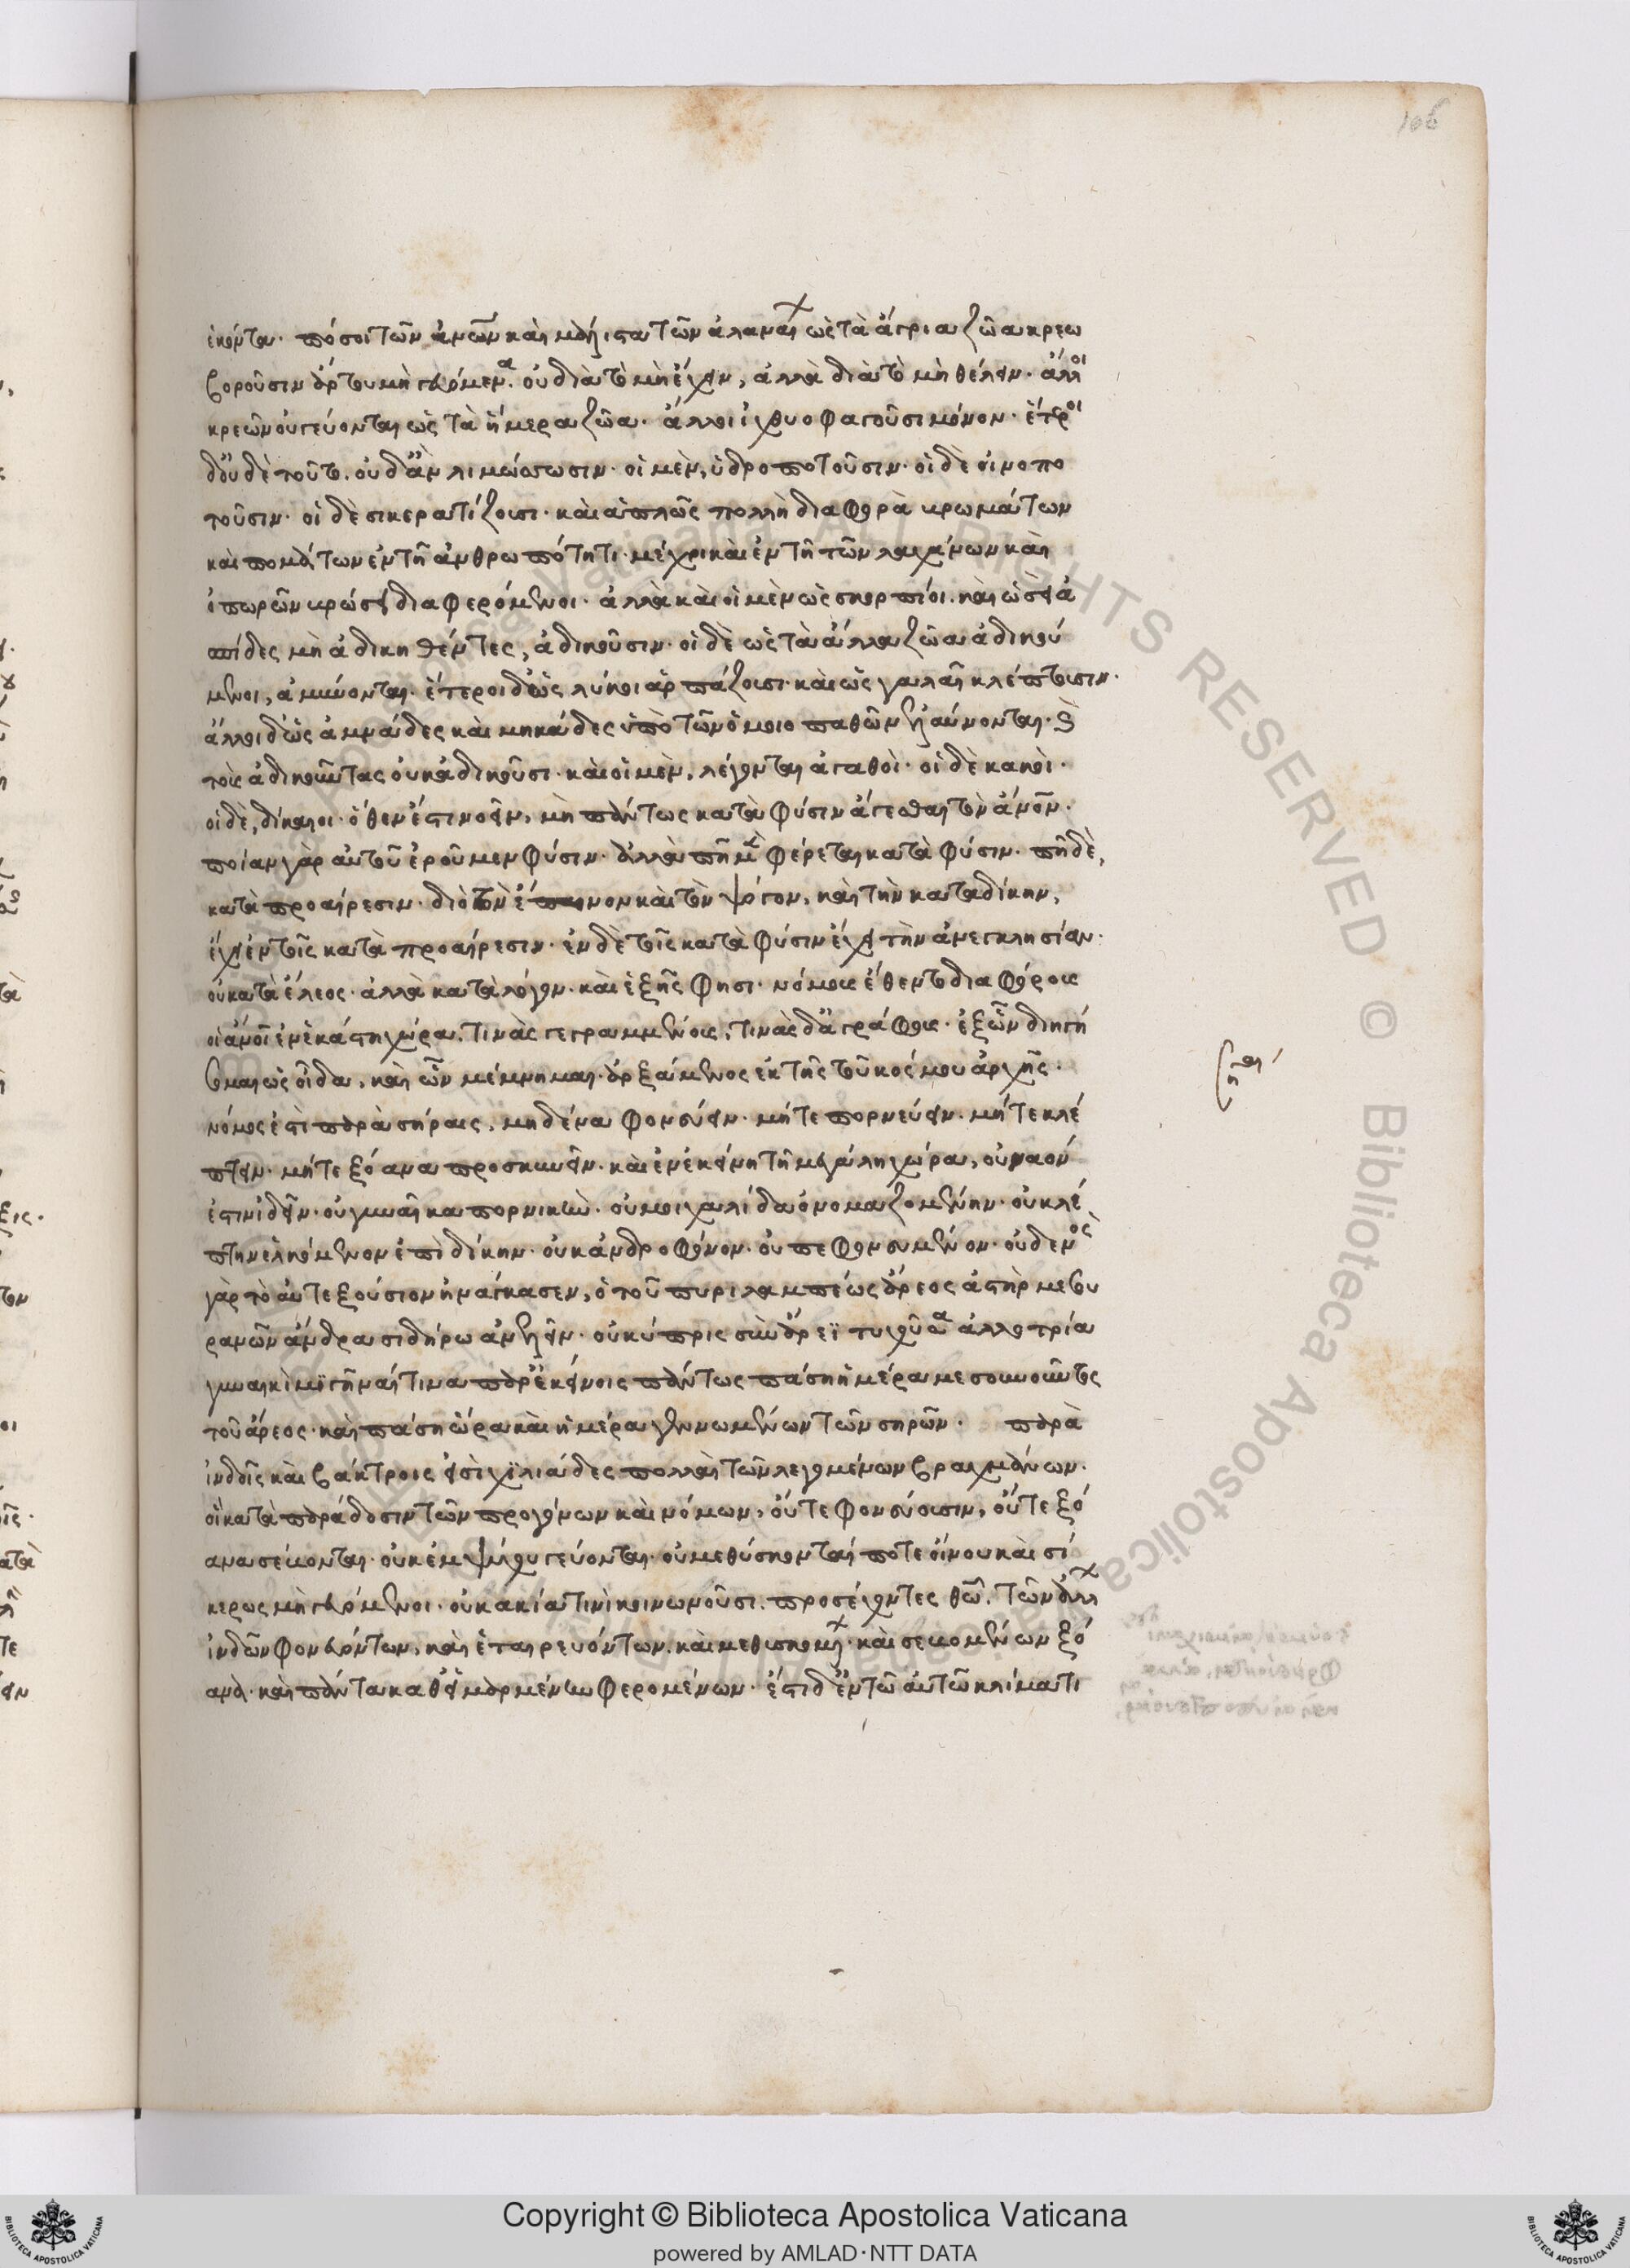 106
ἑκόντα· πόσοι τῶν ἀνῶν καὶ μάλιστα τῶν ἀλαμαν ὡς τὰ ἄγρια ζῶα κρεω
βοροῦσιν ἄρτου μὴ γευόμεν· οὐ διὰ τὸ μὴ ἔχειν, ἀλλὰ διὰ τὸ μὴ θέλειν· ἄλλοι
κρεῶν οὐ γεύονται ὡς τὰ ἥμερα ζῶα· ἄλλοι ἰχθυοφαγοῦσι μόνον· ἕτεροι
δ' οὐδὲ τούτ. οὐδ' ἂν λιμώττωσιν· οἱ μὲν, ὑδροποτοῦσιν· οἱ δὲ οἰνοπο
τοῦσιν· οἱ δὲ σικερατίζουσι· καὶ ἁπλῶς πολλὴ διαφορὰ βρωμάτων
καὶ πομάτων ἐν τῆ ἀνθρωπότητι· μέχρι καὶ ἐν τῆ τῶν λαχάνων καὶ
ὀπωρῶν βρώσει διαφερόμενοι· ἀλλὰ καὶ οἱ μὲν ὡς σκορπίοι. καὶ ὡσεὶ ἀ
σπίδες μὴ ἀδικηθέντες, ἀδικοῦσιν· οἱ δὲ ὡς τὰ ἄλλα ζῶα ἀδικού
μενοι, ἀμύνονται. ἕτεροι δὲ ὡς λύκοι ἁρπάζουσι· καὶ ὡς γαλαῖ κλέπτουσιν·
ἄλλοι δ' ὡς ἀμνάδες καὶ μηκάδες ὑπὸ τῶν ὁμοιοπαθῶν ἐλαύνονται· καὶ
τοὺς ἀδικοῦντας οὐκ ἀδικοῦσι· καὶ οἱ μὲν, λέγονται ἀγαθοὶ· οἱ δὲ κακοὶ·
οἱ δὲ, δίκαιοι· ὅθεν ἔστι νοεῖν, μὴ πάντως κατὰ φύσιν ἄγεσθαι τὸν ἄνον·
ποίαν γὰρ αὐτοῦ ἐροῦμεν φύσιν· ἀλλὰ πῆ μὲν φέρεται κατὰ φύσιν· πῆ δὲ,
κατὰ προαίρεσιν· διὸ τὸν ἔπαινον καὶ τὸν ψόγον, καὶ τὴν καταδίκην,
ἔχει ἐν τοῖς κατὰ προαίρεσιν· ἐν δὲ τοῖς κατὰ φύσιν ἔχει τὴν ἀνεγκλησίαν·
οὐ κατὰ ἔλεος· ἀλλὰ κατὰ λόγον· καὶ ἑξῆς φησι· νόμους ἔθεντο διαφόρους
οἱ ἄνοι ἐν ἑκάστη χώρα. τινὰς γεγραμμένους, τινὰς δ' ἀγράφους· ἐξ ὧν διηγή
σομαι ὡς οἶδα, καὶ ὧν μέμνημαι· ἀρξάμενος ἐκ τῆς τοῦ κόσμου ἀρχῆς·
νόμος ἐστὶ παρὰ σήραις, μηδένα φονεύειν· μήτε πορνεύειν· μήτε κλέ
πτειν· μήτε ξόανα προσκυνεῖν· καὶ ἐν ἐκείνη τῆ μεγάλη χώρα, οὐ ναόν
ἐστιν ἰδεῖν· οὐ γυναῖκα πορνικὴν· οὐ μοιχαλίδα ὀνομαζομένην· οὐ κλέ
πτην ἑλκόμενον ἐπὶ δίκην· οὐκ ἀνδροφόνον· οὐ πεφονευμένον· οὐδενὸς
γὰρ τὸ αὐτεξούσιον ἠνάγκασεν, ὁ τοῦ πυριλαμπέως ἄρεος ἀστὴρ μεσου
ρανῶν ἄνδρα σιδήρω ἀνελεῖν· οὐ κύπρις σὺν ἄρεϊ τυχοῦσα ἀλλοτρία
γυναικὶ μιγῆναί τινα παρ' ἐκείνοις πάντως πάση ἡμέρα μεσουνοῦντος
τοῦ ἄρεος· καὶ πάση ὥρα καὶ ἡμέρα γεννωμένων τῶν σηρῶν· παρὰ
ἰνδοῖς καὶ βάκτροις εἰσὶ χιλιάδες πολλαὶ τῶν λεγομένων βραχμάνων·
οἳ κατὰ παράδοσιν τῶν προγόνων καὶ νόμων, οὔτε φονεύουσιν, οὔτε ξό
ανα σέβονται· οὐκ ἐμψύχου γεύονται· οὐ μεθύσκονταί ποτε οἴνου καὶ σί
κερος μὴ γευόμενοι· οὐ κακία τινὶ κοινωνοῦσι. προσέχοντες θῶ· τῶν ἄλλ
ἰνδῶν φονευόντων, καὶ ἑταιρευόντων. καὶ μεθυσκομέν· καὶ σεβομένων ξό
ανα· καὶ πάντα καθ' εἱμαρμένην φερομένων· ἔστι δ' ἐν τῶ αὐτῶ κλίματι
Copyright © Biblioteca Apostolica Vaticana
powered by AMLAD·NTT DATA